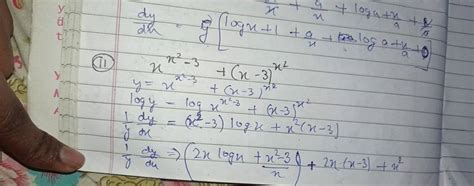 dy/dx = y [ logx + 1 + a/x + log a + x/a + 0 ]
(11) x^(x²-3) + (x-3)^(x²)
y = x^(x²-3) + (x-3)^(x²)
log y - log x^(x²-3) + (x-3)^(x²)
1/y dy/dx = (x²-3) log x + x²(x-3)
1/y dy/dx => (2x logx + x²-3/x) + 2x(x-3) + x²